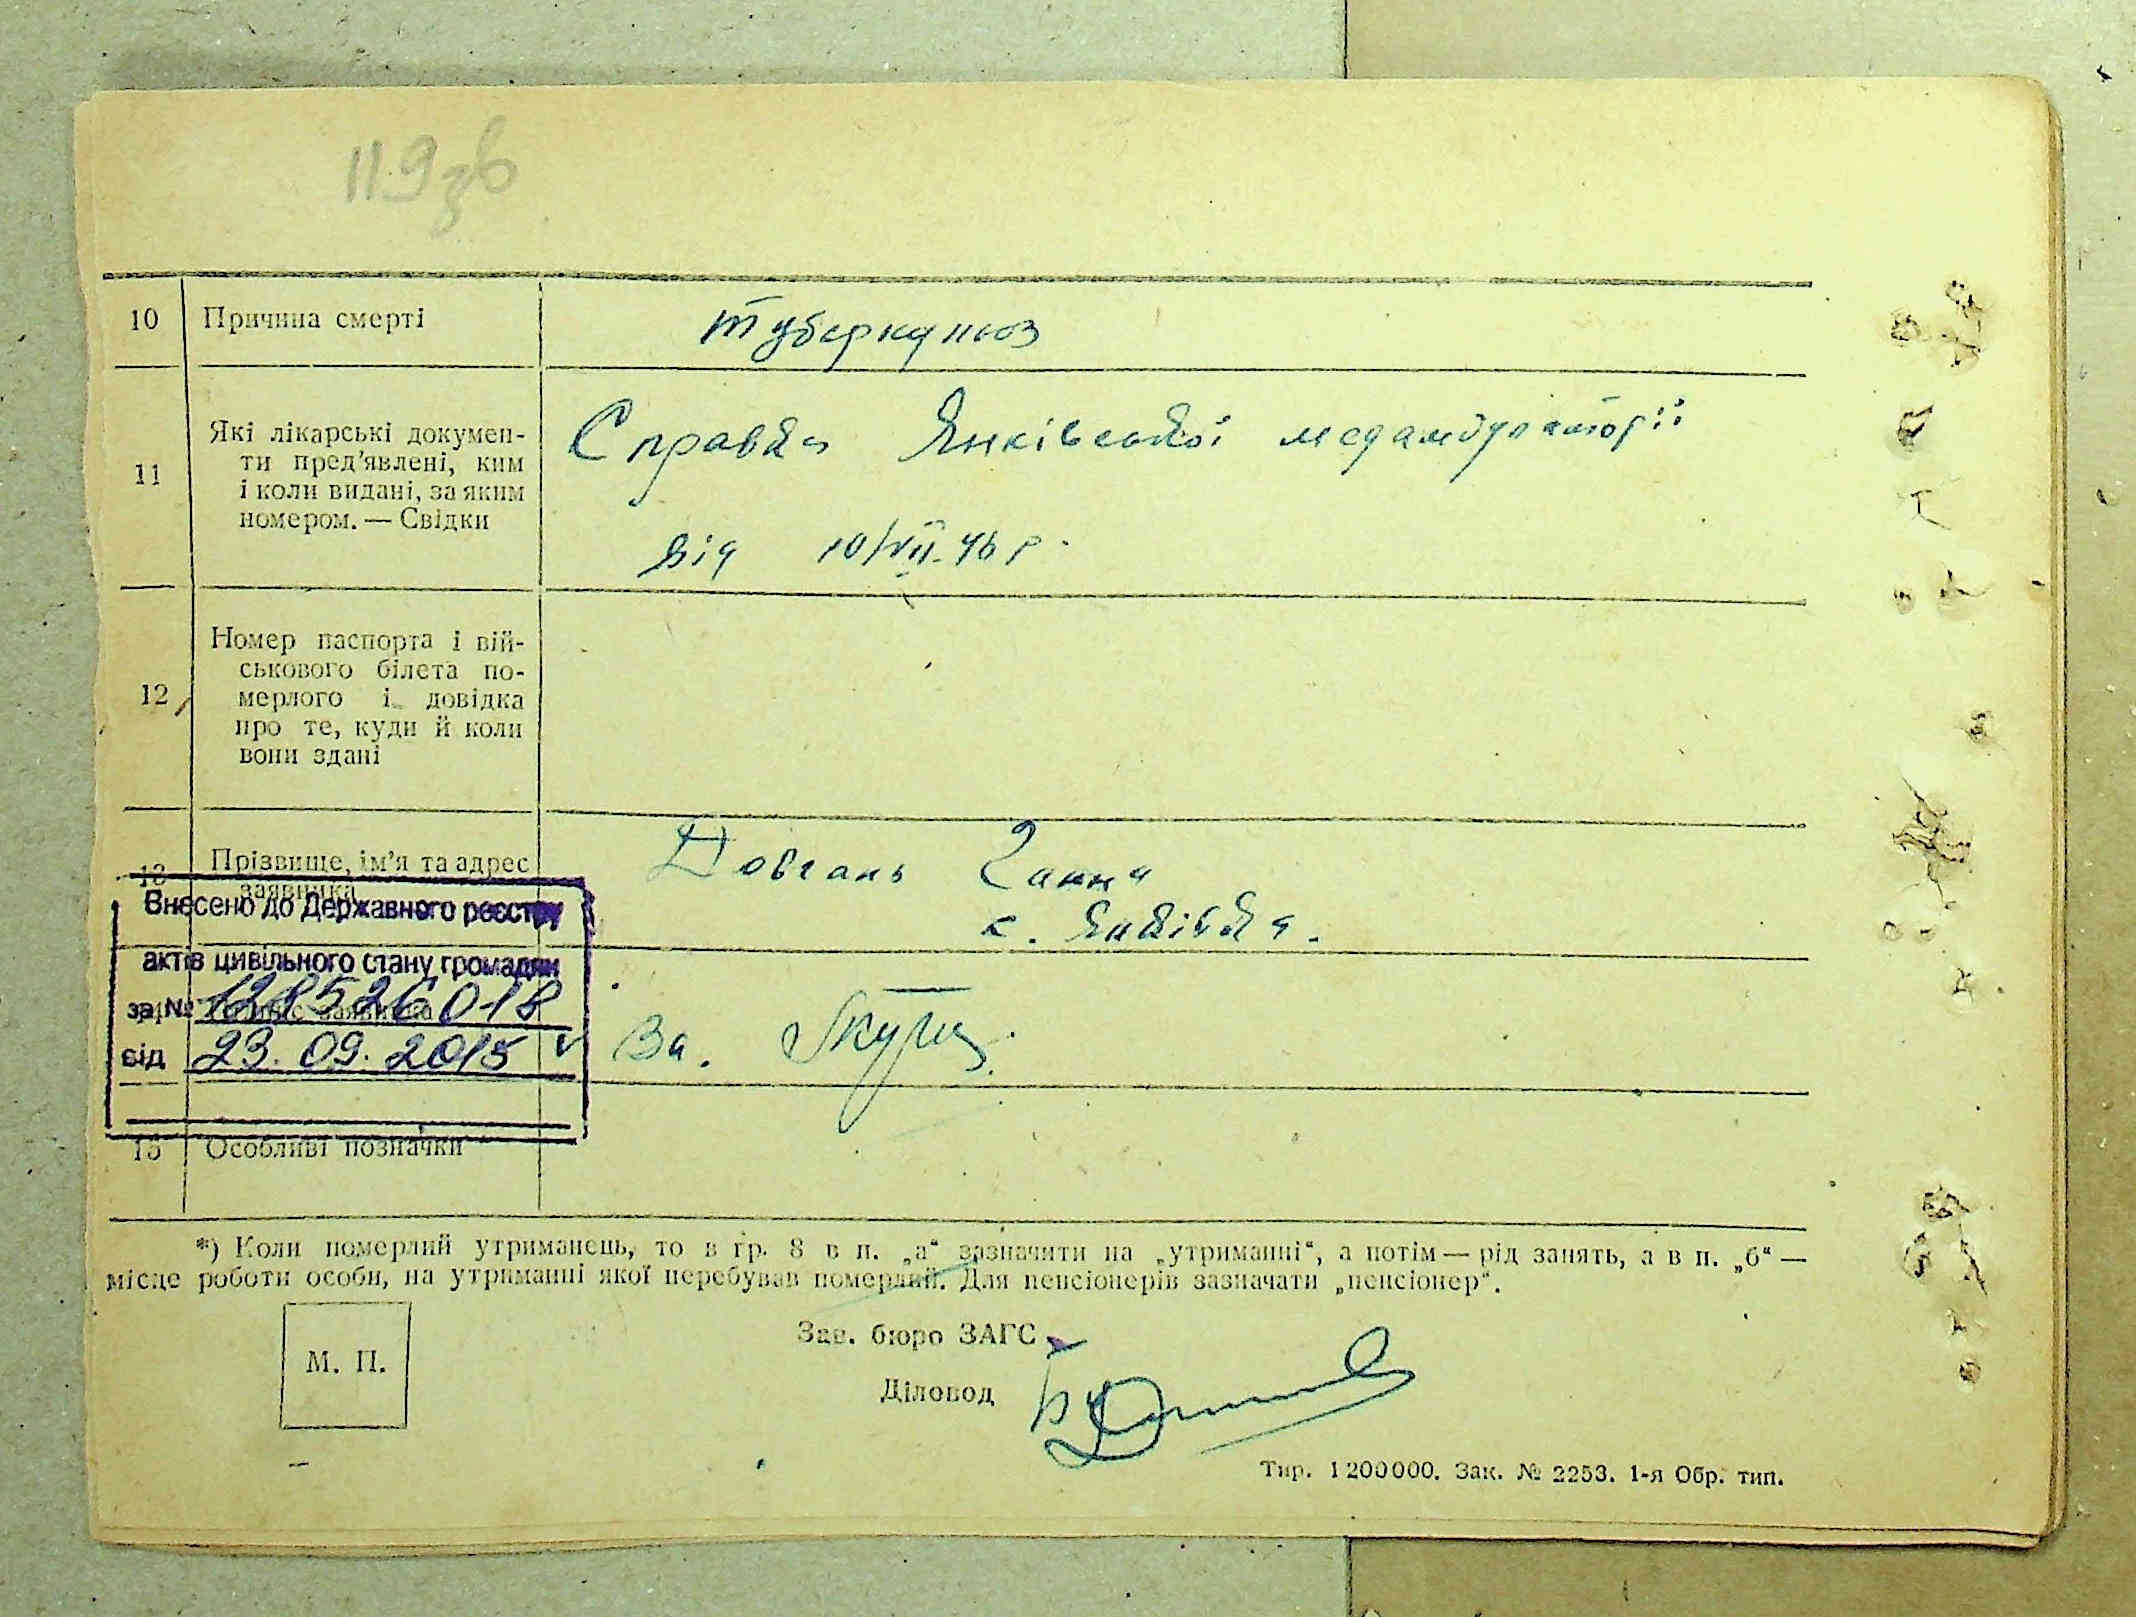 119зв
10 Причина смерті туберкульоз
11 Які лікарські докумен-
ти пред'явлені, ким
і коли видані, за яким
номером. — Свідки
Справка Янківської медамбулаторії
від 10/VII. 46 р.
12 Номер паспорта і вій-
ськового білета по-
мерлого і довідка
про те, куди й коли
вони здані
13 Прізвище, ім'я та адрес
заявника
Довгань Ганна
с. Янківка.
Внесено до Державного реєстру
актів цивільного стану громадян
за № 128526018
від 23.09.2015
За.
15 Особливі позначки
*) Коли померлий утриманець, то в гр. 8 в п. „а“ зазначити на „утриманні“, а потім — рід занять, а в п. „б“ —
місце роботи особи, на утриманні якої перебував померлий. Для пенсіонерів зазначати „пенсіонер“.
М. П.
Зав. бюро ЗАГС
Діловод
Тир. 1200000. Зак. № 2253. 1-я Обр. тип.